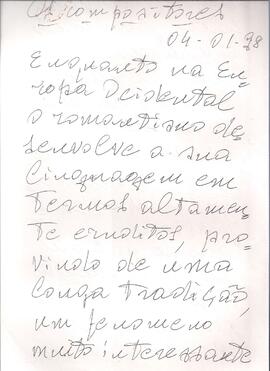 Os compositores
04-01-78
Enquanto na Eu-
ropa Ocidental
o romantismo de-
senvolve a sua
linguagem em
termos altamen-
te eruditos, pro-
vindo de uma
longa tradição,
um fenomeno
muito interessante